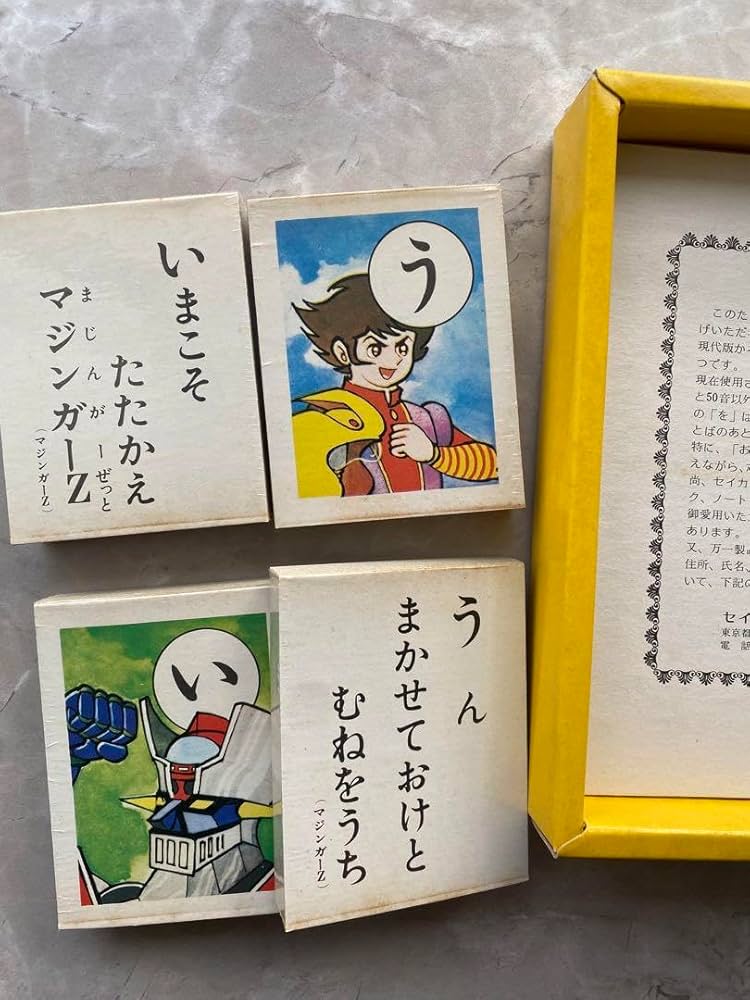 いまこそ
たたかえ
マジンガーZ
まじんがーぜっと
(マジンガーZ)
う
い
うん
まかせておけと
むねをうち
(マジンガーZ)
このた
げいただ
現代版か
つです。
現在使用さ
と50音以外
の「を」は
とばのあと
特に、「お
えながら、
尚、セイカ
ク、ノート
御愛用いた
あります。
又、万一製
住所、氏名、
いて、下記の
セイ
東京都
電話